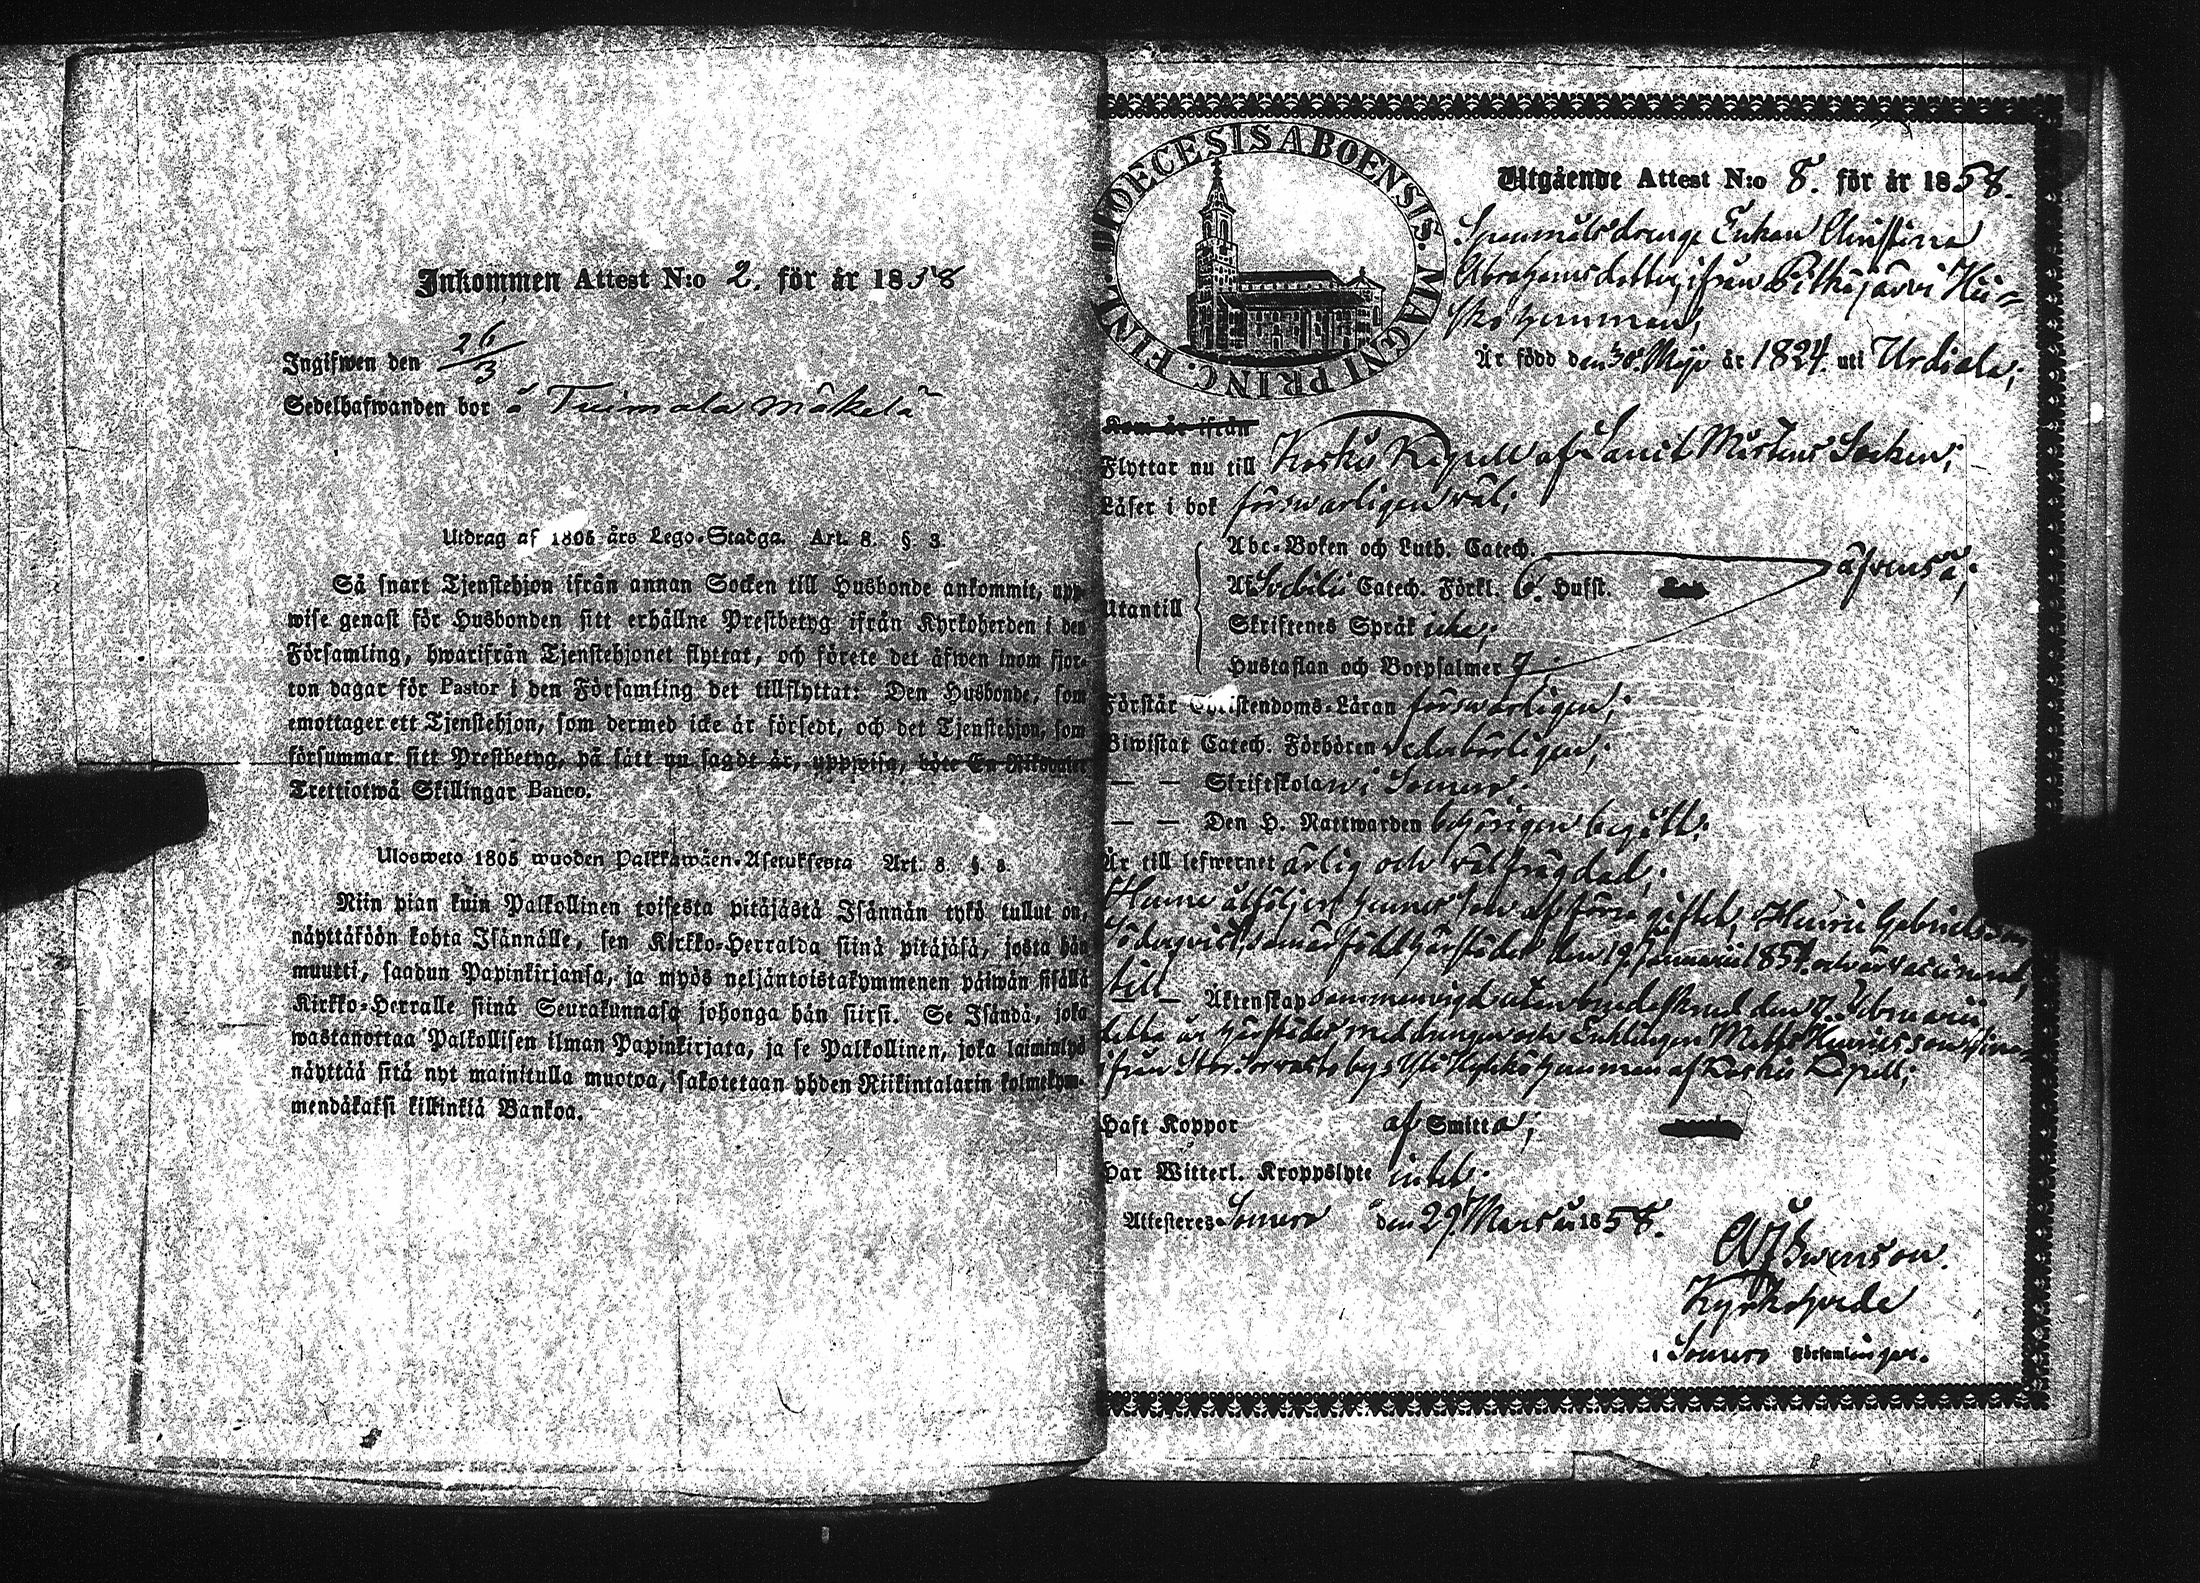 Inkommen Attest N:o 2. för år 1858
Ingifwen den 26/3
Sedelhafwanden bor å Tuimala Mäkelä
Utdrag af 1805 års Lego-Stadga. Art. 8. § 3.
Så snart Tjenstehjon ifrån annan Socken till Husbonde ankommit, upp-
wise genast för Husbonden sitt erhållne Prestbetyg ifrån Kyrkoherden i den
Församling, hwarifrån Tjenstehjonet flyttat, och förete det äfwen inom fjor-
ton dagar för Pastor i den Församling det tillflyttat: Den Husbonde, som
emottager ett Tjenstehjon, som dermed icke är försedt, och det Tjenstehjon, som
försummar sitt Prestbetyg, på sätt nu sagdt är, uppwisa, böte En Riksdaler
Trettiotwå Skillingar Banco.
Ulosweto 1805 wuoden Palkkawäen-Asetuksesta Art. 8. §. 3.
Niin pian kuin Palkollinen toisesta pitäjästä Isännän tykö tullut on,
näyttäköön kohta Isännälle, sen Kirkko-Herralda siinä pitäjäsä, josta hän
muutti, saadun Papinkirjansa, ja myös neljäntoistakymmenen päiwän sisällä
Kirkko-Herralle siinä Seurakunnasa johonga hän siirsi. Se Isändä, joka
wastanottaa Palkollisen ilman Papinkirjata, ja se Palkollinen, joka laiminlyö
näyttää sitä nyt mainitulla muotoa, sakotetaan yhden Riikintalarin kolmekym-
mendäkaksi killinkiä Bankoa.
FINL. DIOECESIS ABOENSIS. MAGNI PRINC.
Utgående Attest N:o 8. för år 1858.
Spanmåls drengs Enkan Christina
Abrahamsdotter, ifrån Pitkäjärvi Hii-
sko hemman,
Är född den 30. Maji år 1824. uti Urdiala;
Kom år ifrån
Flyttar nu till Koskis Kapell af Sanct Mårtens Socken;
Läser i bok förswarligen wäl;
Abc-Boken och Luth. Catech. äfwenså;
Utantill Af Svebilii Catech. Förkl. 6. Hufst.
Skriftenes Språk icke;
Hustaflan och Botpsalmer 7;
Förstår Christendoms-Läran förswarligen;
Biwistat Catech. Förhören wederbörligen;
— — Skriftskolan i Somero;
— — Den H. Nattwarden behörigen begått;
Är till lefwernet ärlig och wälfrägdad;
Henne åtföljer hennes son af förra giftet, Henric Gabrielsson
Söderqvist, som är född härstädes den 19 Januarii 1854. och är vaccinerad;
till — Äktenskap sammanvigd utan brudeskrud den 7. Februarii
detta år härstädes med drengen och Enklingen Matts Henricsson
ifrån by Yli hemman af Koskis Kapell;
Haft Koppor af Smitta;
Har Witterl. Kroppslyte intet;
Attesteres Somero den 29. Martii 1858.
Swenson.
Kyrkoherde
i Somero Församlingar.